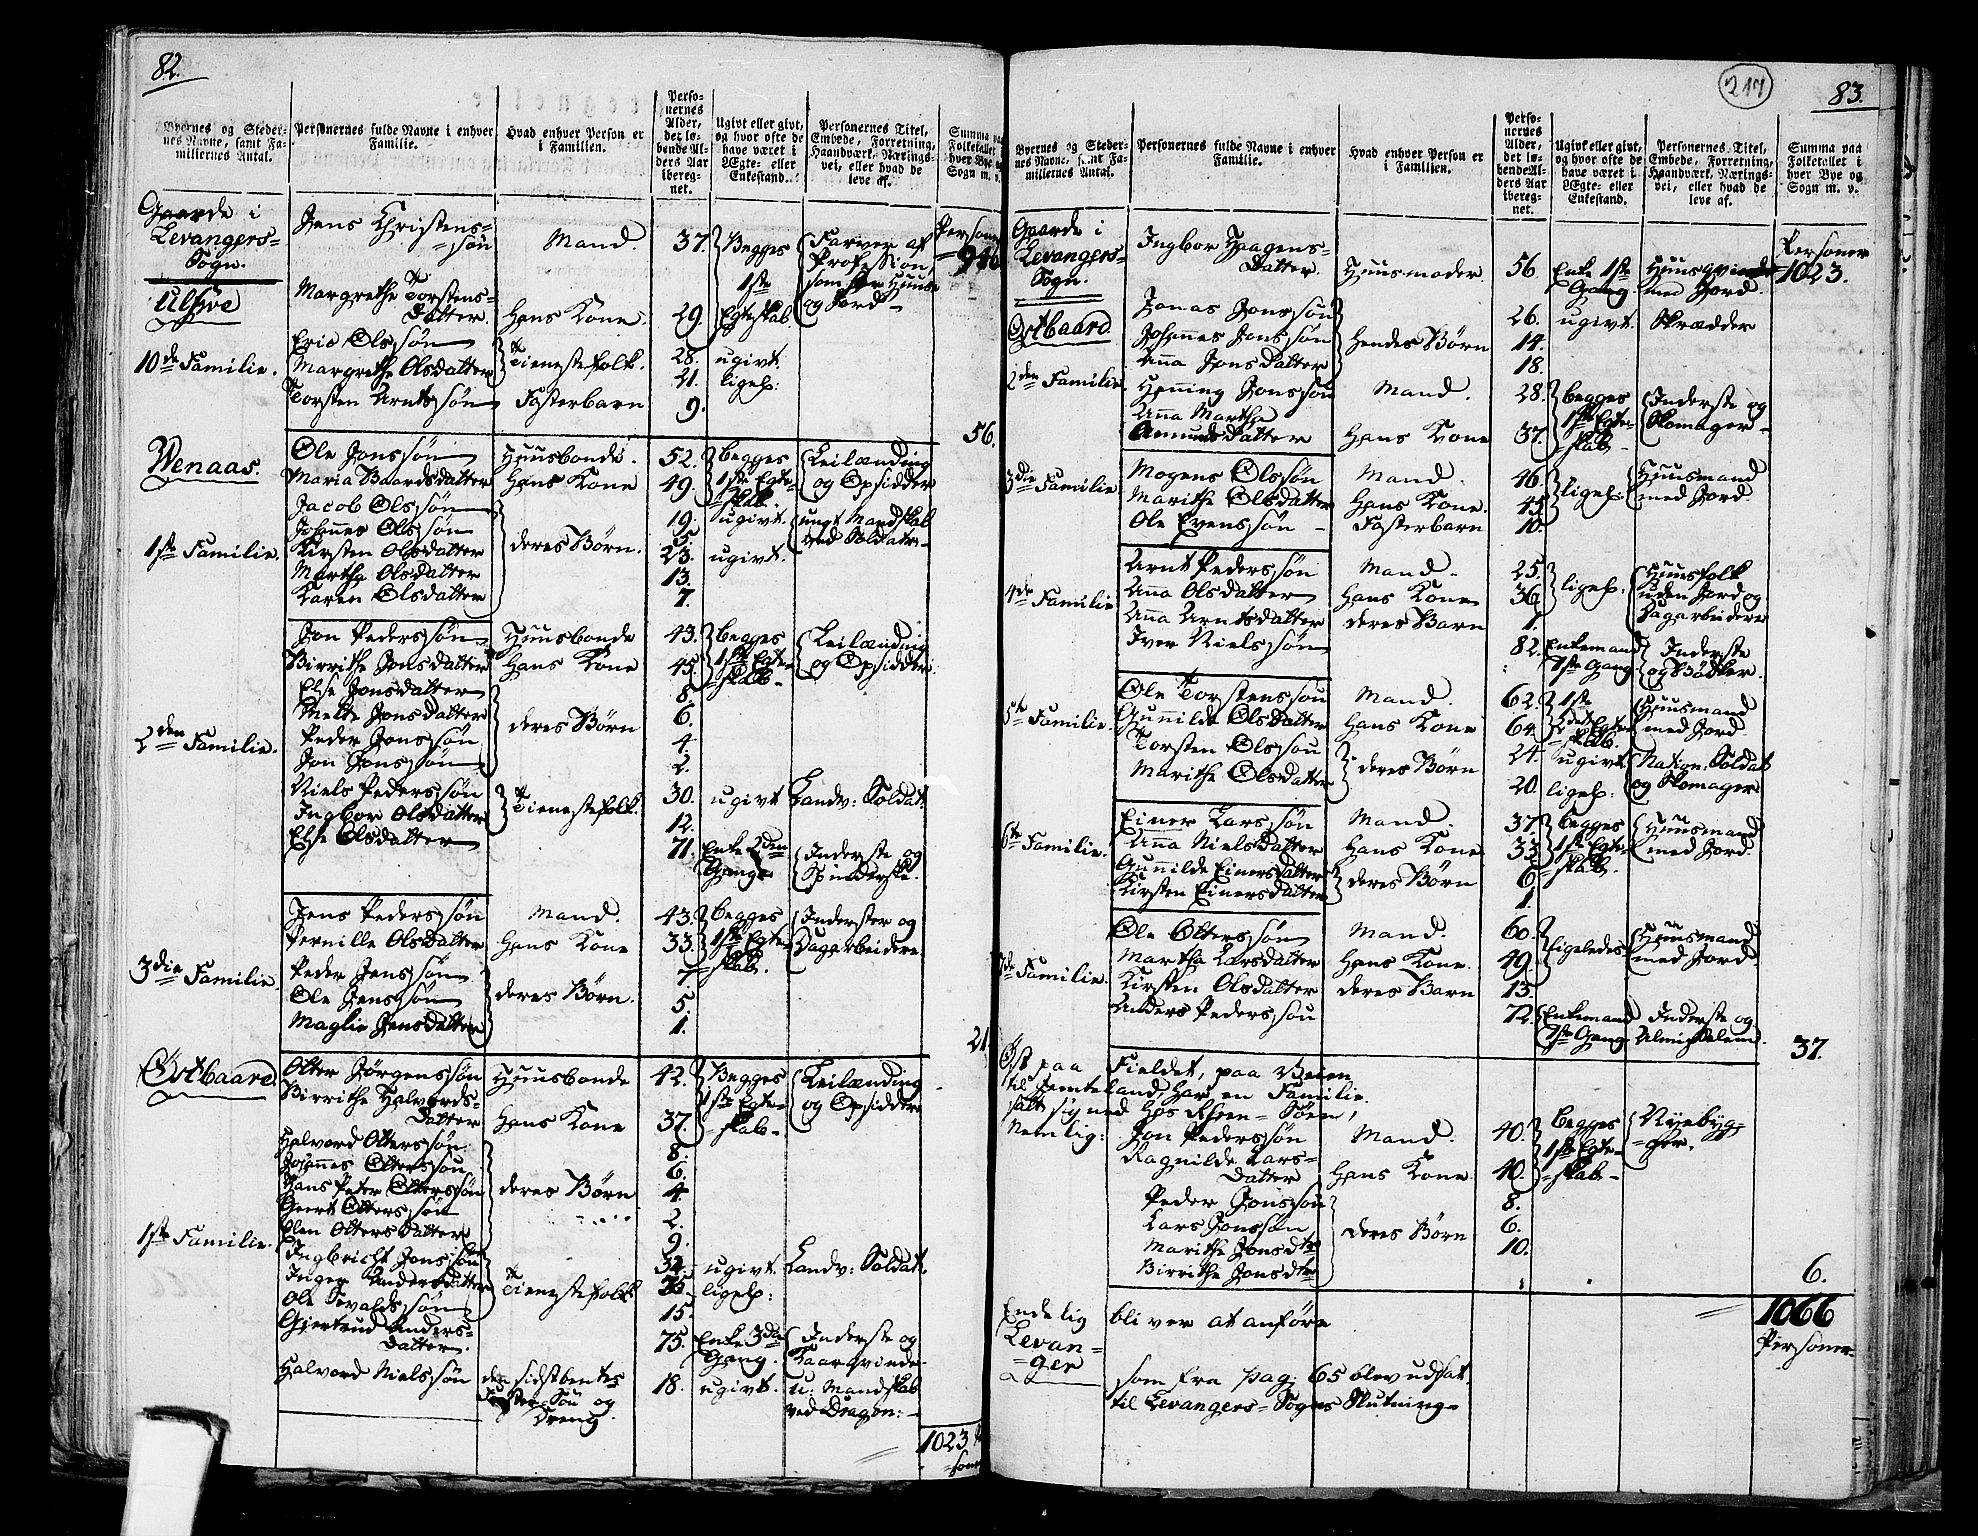 82.
Byernes og Steder-
nes Navne, samt Fa-
miliernes Antal.
Personernes fulde Navne i enhver
Familie.
Hvad enhver Person er
i Familien.
Perso-
nernes
Alder,
det lø-
bende Al-
ders Aar
iberegnet.
Ugivt eller givt,
og hvor ofte de
have været i
Ægte- eller
Enkestand.
Personernes Titel,
Embede, Forretning,
Haandværk, Nærings-
vei, eller hvad de
leve af.
Summa paa
Folketallet i
hver Bye og
Sogn m. v.
Gaarde i
Levangers-
Sogn.
Ulsve
10de Familie.
Jens Christens-
søn Mand. 37. Begges 1ste Egteskab. Farver af Profession, som har Huus og Jord
Personer 946
Margrethe Torstens-
Datter. Hans Kone. 29.
Eric Olssøn Tienestefolk. 28. ugivt.
Margrethe Olsdatter 21. ligel:
Torsten Arntssøn Fosterbarn 9.
56.
Wenaas.
1ste Familie.
Ole Jonssøn Huusbonde. 52. begges 1ste Egte-skab. Leilænding og Opsidder
Maria Baardsdatter Hans Kone 49.
Jacob Olssøn deres Børn. 19. ugivt. ungt Mandskab ved Soldater-
Johannes Olssøn 5.
Kirsten Olsdatter 23. ugivt.
Martha Olsdatter 13.
Karen Olsdatter 7.
2den Familie.
Jon Pederssøn Huusbonde 43. begges 1ste Egte-skab- Leilænding og Opsidder.
Birrithe Jonsdatter Hans Kone 45.
Else Jonsdatter deres Børn 8.
Melte Jonsdatter 6.
Peder Jonssøn 4.
Jon Jonssøn 2.
Niels Pederssøn Tienestefolk. 30. ugivt Landv: Soldat.
Ingbor Olsdatter 12.
Else Olsdatter 71. Enke 2den Gang. Inderste og Spinderske.
3die Familie.
Jens Pederssøn Mand. 43. begges 1ste Egte-skab. Inderster og Dagarbeidere
Pernille Olsdatter Hans Kone 33.
Peder Jenssøn deres Børn. 7.
Ole Jenssøn 5.
Maglie Jensdatter 1.
21
Østbaard.
1ste Familie.
Olter Jørgenssøn Huusbonde 42. Begges 1ste Egte-skab- Leilænding og Opsidder
Birrithe Halvords-
Datter Hans Kone 37.
Halvord Olterssøn deres Børn 8.
Johannes Olterssøn 6.
Hans Peter Olterssøn 4.
Geert Olterssøn 2.
Elen Oltersdatter 9.
Ingbricht Jonssøn Tienestefolk 34. ugivt. Landv: Soldat.
Inger Andersdatter ligel:
Ole Sevaldssøn 15.
Giertrud Anders-
Datter. 75. Enke 3die Gang. Inderste og Kaarqvinde.
Halvord Nielssøn den sidstbentes Søster-Søn og Dreng. 18. ugivt. u: Mandskab ved Dragon:
1023 Per-
soner
217
83.
Byernes og Steder-
nes Navne, samt Fa-
miliernes Antal.
Personernes fulde Navne i enhver
Familie.
Hvad enhver Person er
i Familien.
Perso-
nernes
Alder,
det lø-
bende Al-
ders Aar
iberegnet.
Ugivt eller givt,
og hvor ofte de
have været i
Ægte- eller
Enkestand.
Personernes Titel,
Embede, Forretning,
Haandværk, Nærings-
vei, eller hvad de
leve af.
Summa paa
Folketallet i
hver Bye og
Sogn m. v.
Gaarde i
Levangers-
Sogn.
Østbaard.
Ingbor Haagens-
Datter. Huusmoder 56. Enke 1ste Gang. Huusqvinde med Jord. Personer 1023.
Jonas Jonssøn hendes Børn 26. ugivt. Skrædder
Johannes Jonssøn 14.
Anna Jonsdatter 18.
2den Familie
Henning Jonssøn Mand. 28. begges 1ste Egte-skab- Inderste og Skomager-
Anna Marthe
Amundsdatter Hans Kone 37.
3die Familie
Mogens Olssøn Mand. 46. ligel: Huusmand med Jord
Marithe Olsdatter Hans Kone. 45.
Ole Evenssøn Fosterbarn 10.
4de Familie
Arnt Pederssøn Mand. 25. ligel: Huusfolk uden Jord og Dagarbeidere
Anna Olsdatter Hans Kone 36.
Anna Arntsdatter deres Barn 1.
Iver Nielssøn 82. Enkemand 1ste Gang Inderste og Bødker.
5te Familie.
Ole Torstenssøn Mand. 62. 1ste 2det Egte-skab. Huusmand med Jord
Gunnilde Olsdatter Hans Kone 64.
Torsten Olssøn deres Børn 24. ugivt Nation: Soldat og Skomager
Marithe Olsdatter 20. ligel:
6te Familie.
Einer Larssøn Mand. 37. begges 1ste Egte-skab. Huusmand med Jord.
Anna Nielsdatter Hans Kone 33.
Gunnilde Einersdatter deres Børn 6
Kirsten Einersdatter 1.
7de Familie.
Ole Olterssøn Mand. 60. ligeledes Huusmand med Jord.
Martha Larsdatter Hans Kone. 49.
Kirsten Olsdatter deres Barn 13.
Anders Pederssøn 72. Enkemand 1ste Gang Inderste og Almisselem.
37.
Øst paa Fieldet, paa Veien
til Jemteland, har en Familie
satt sig ned hos Rheen-Søen,
Nemlig:
Jon Pederssøn Mand. 40. begges 1ste Egte-skab- Nyebyg-
ger.
Ragnilde Lars-
Datter Hans Kone 40.
Peder Jonssøn deres Børn 8.
Lars Jonssøn 6.
Marithe Jonsdtr 10.
Birrithe Jonsdtr 1
6.
1066
Personer-
Endelig bliver at anføre
Levan-
ger
som fra pag: 65 blev udsat
til Levangers-Sogns Slutning-